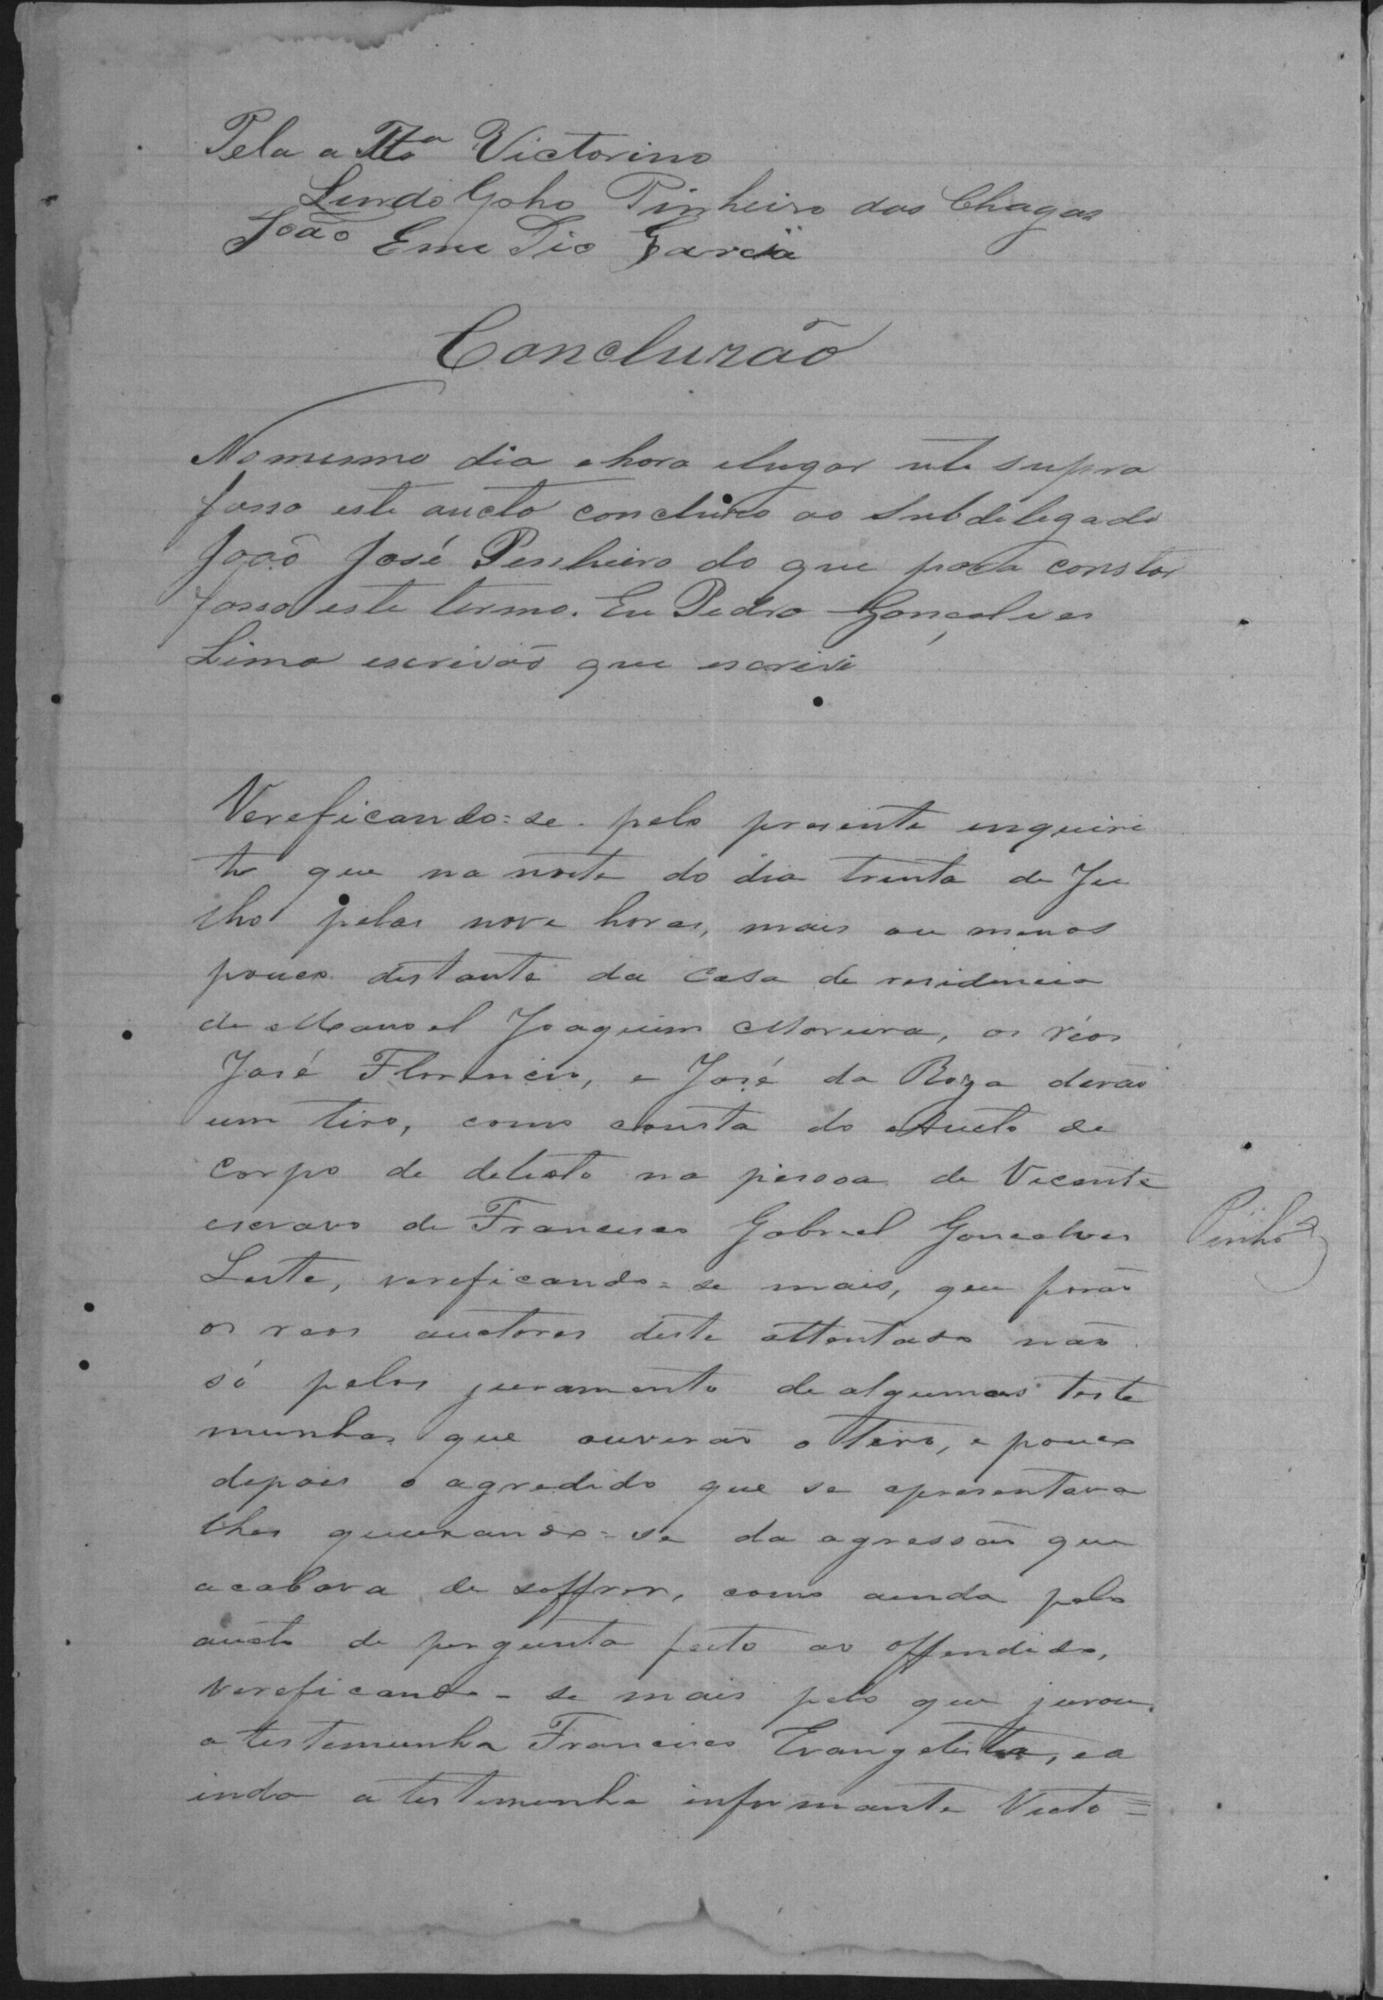 Pela a Tta Victorino
Lindolpho Pinheiro das Chagas
João Eme Dio Garcia
Concluzão
No mesmo dia e hora e lugar ut supra
fasso este aucto concluso ao Subdelegado
João José Penheiro do que para constar
fasso este termo. Eu Pedro Gonçalves
Lima escrivão que escrivi
Vereficando=se pelo presente enqueri
to que na noite do dia trinta de Ju
lho pelas nove horas, mais ou menos
pouco destante da casa de residencia
de Manoel Joaquim Moreira, os réos
José Florencio, e José da Roza derão
um tiro, como consta do Aucto de
corpo de delicto na pessoa de Vicente
escravo de Francisco Gabriel Gonçalves
Leite, vereficando=se mais, que forão
os reos auctores deste attentado não
só pelos juramento de algumas teste
munhas que ouverão o tiro, e pouco
depois o agredido que se apresentava
lhes queixando=se da agressão que
acabava de soffrer, como ainda pelo
aucto de pergunta feito ao offendido,
vereficando-se mais pelo que jurou
a testemunha Francisco Evangelista, e a
inda a testemunha informante Victo=
Pinhº